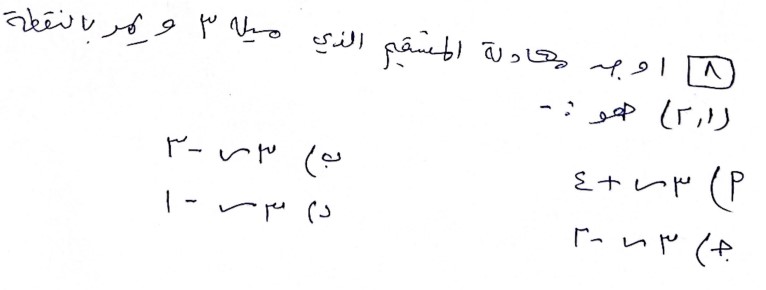 ٨ اوجد معادلة المستقيم الذي ميله ٣ و يمر بالنقطة
(٢,١) هو :-
أ) ٣س + ٤ ب) ٣س - ٣
ج) ٣س - ٢ د) ٣س - ١